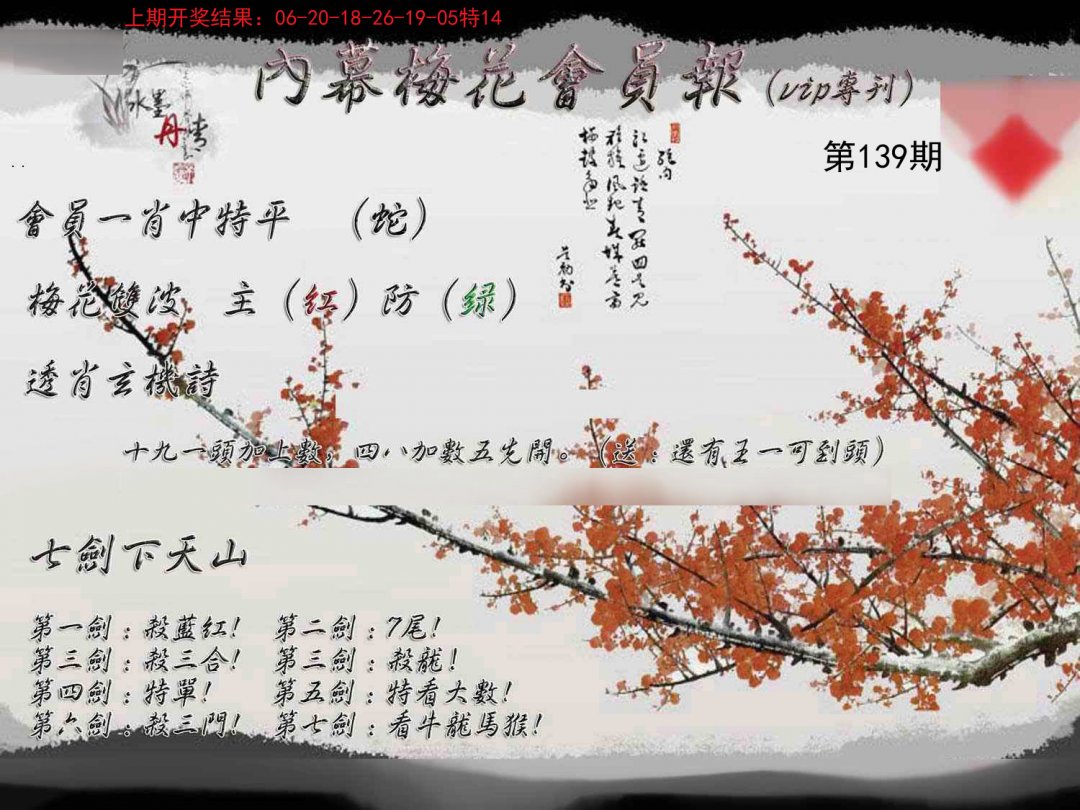 上期开奖结果：06-20-18-26-19-05特14
內幕梅花會員報（vip專刊）
水墨
丹青
第139期
會員一肖中特平　（蛇）
梅花雙波　主（红）防（绿）
透肖玄機詩
十九一頭加上數，四八加數五先開。（送：還有王一可到頭）
七劍下天山
第一劍：殺藍红！　第二劍：7尾！
第三劍：殺三合！　第三劍：殺龍！
第四劍：特單！　第五劍：特看大數！
第六劍：殺三門！　第七劍：看牛龍馬猴！